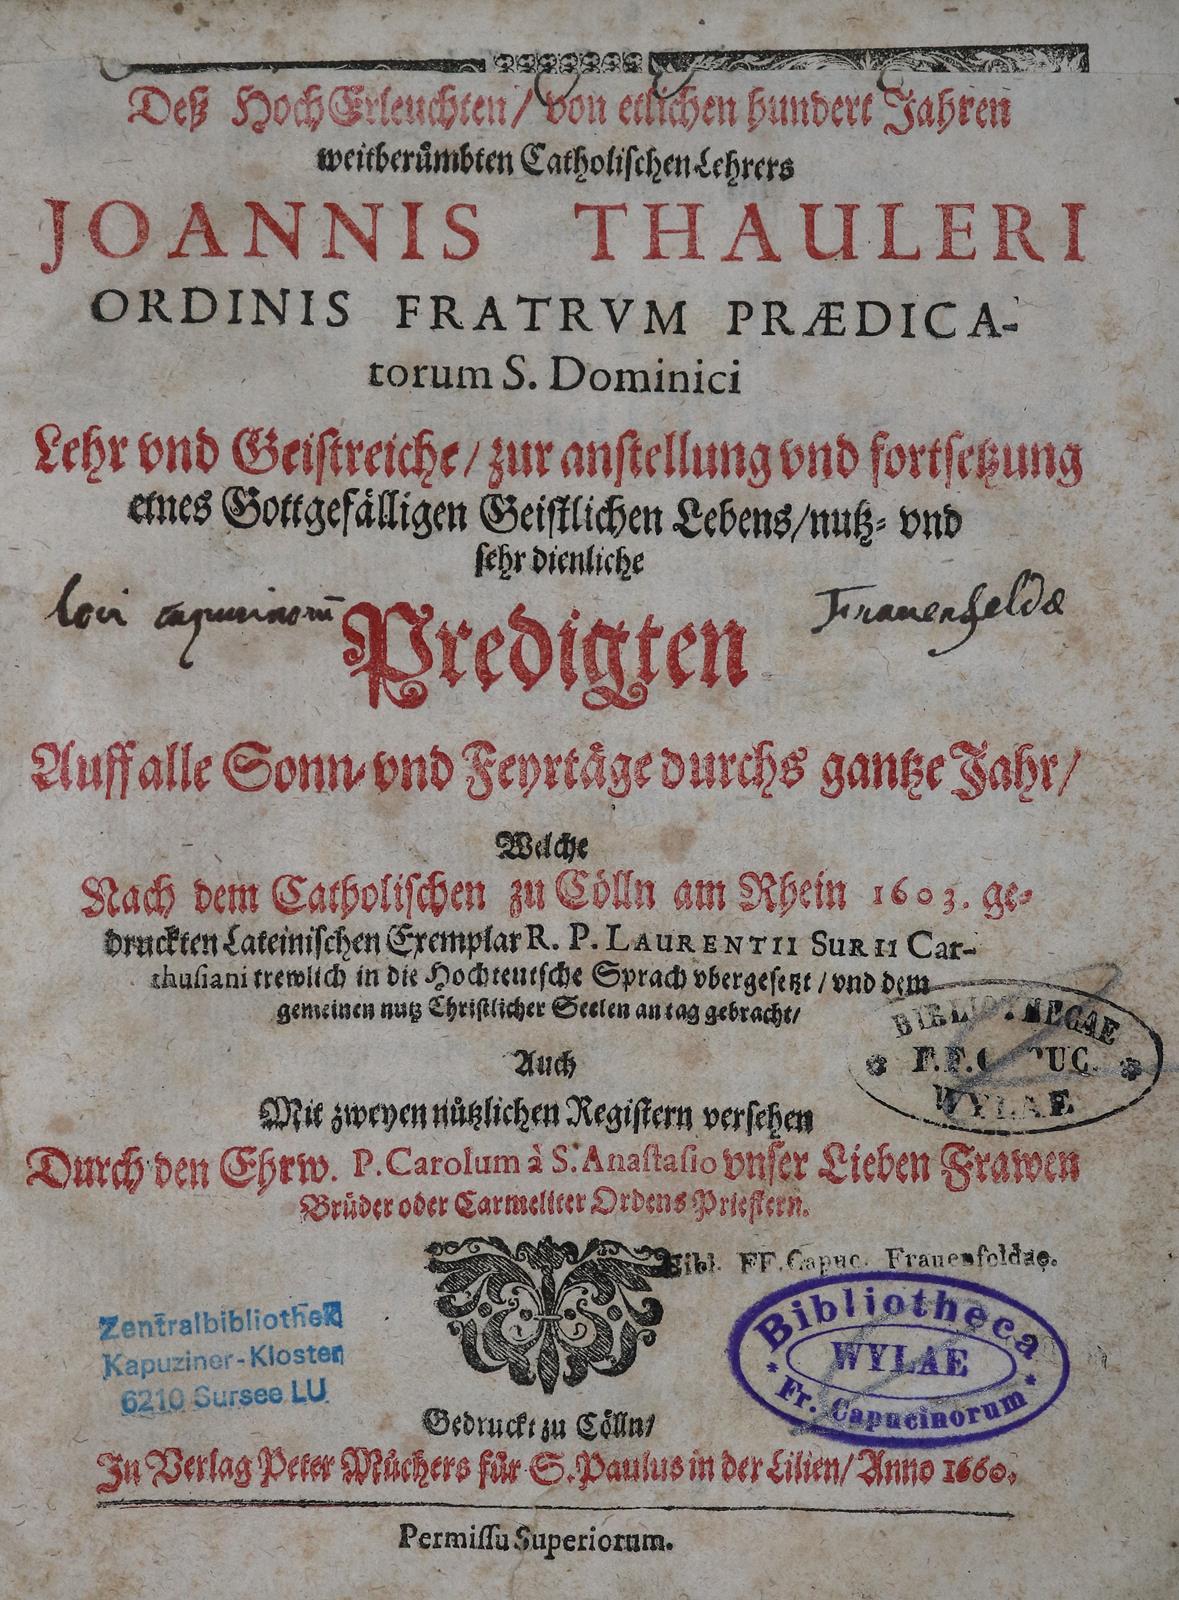 Deß HochErleuchten/ von etlichen hundert Jahren
weitberůmbten Catholischen Lehrers
JOANNIS THAULERI
ORDINIS FRATRVM PRÆDICA-
torum S. Dominici
Lehr vnd Geistreiche/ zur anstellung vnd fortsetzung
eines Gottgefälligen Geistlichen Lebens/nutz- vnd
sehr dienliche
loci capucinorū Frauenfeldæ
Predigten
Auff alle Sonn- vnd Feyrtäge durchs gantze Jahr/
Welche
Nach dem Catholischen zu Cölln am Rhein 1603. ge-
druckten Lateinischen Exemplar R. P. LAURENTII SURII Car-
thusiani trewlich in die Hochteutsche Sprach vbergesetzt / vnd dem
gemeinen nutz Christlicher Seelen an tag gebracht/
BIBLIOTHECAE
F.F. CAPUC.
WYLAE
Auch
Mit zweyen nůtzlichen Registern versehen
Durch den Ehrw. P. Carolum à S. Anastasio vnser Lieben Frawen
Brüder oder Carmeliter Ordens Priestern.
Bibl. FF. Capuc. Frauenfeldae.
Bibliotheca
WYLAE
* Fr. Capucinorum *
Zentralbibliothek
Kapuziner-Kloster
6210 Sursee LU
Gedruckt zu Cölln/
In Verlag Peter Můchers fůr S. Paulus in der Lilien/ Anno 1660.
Permissu Superiorum.